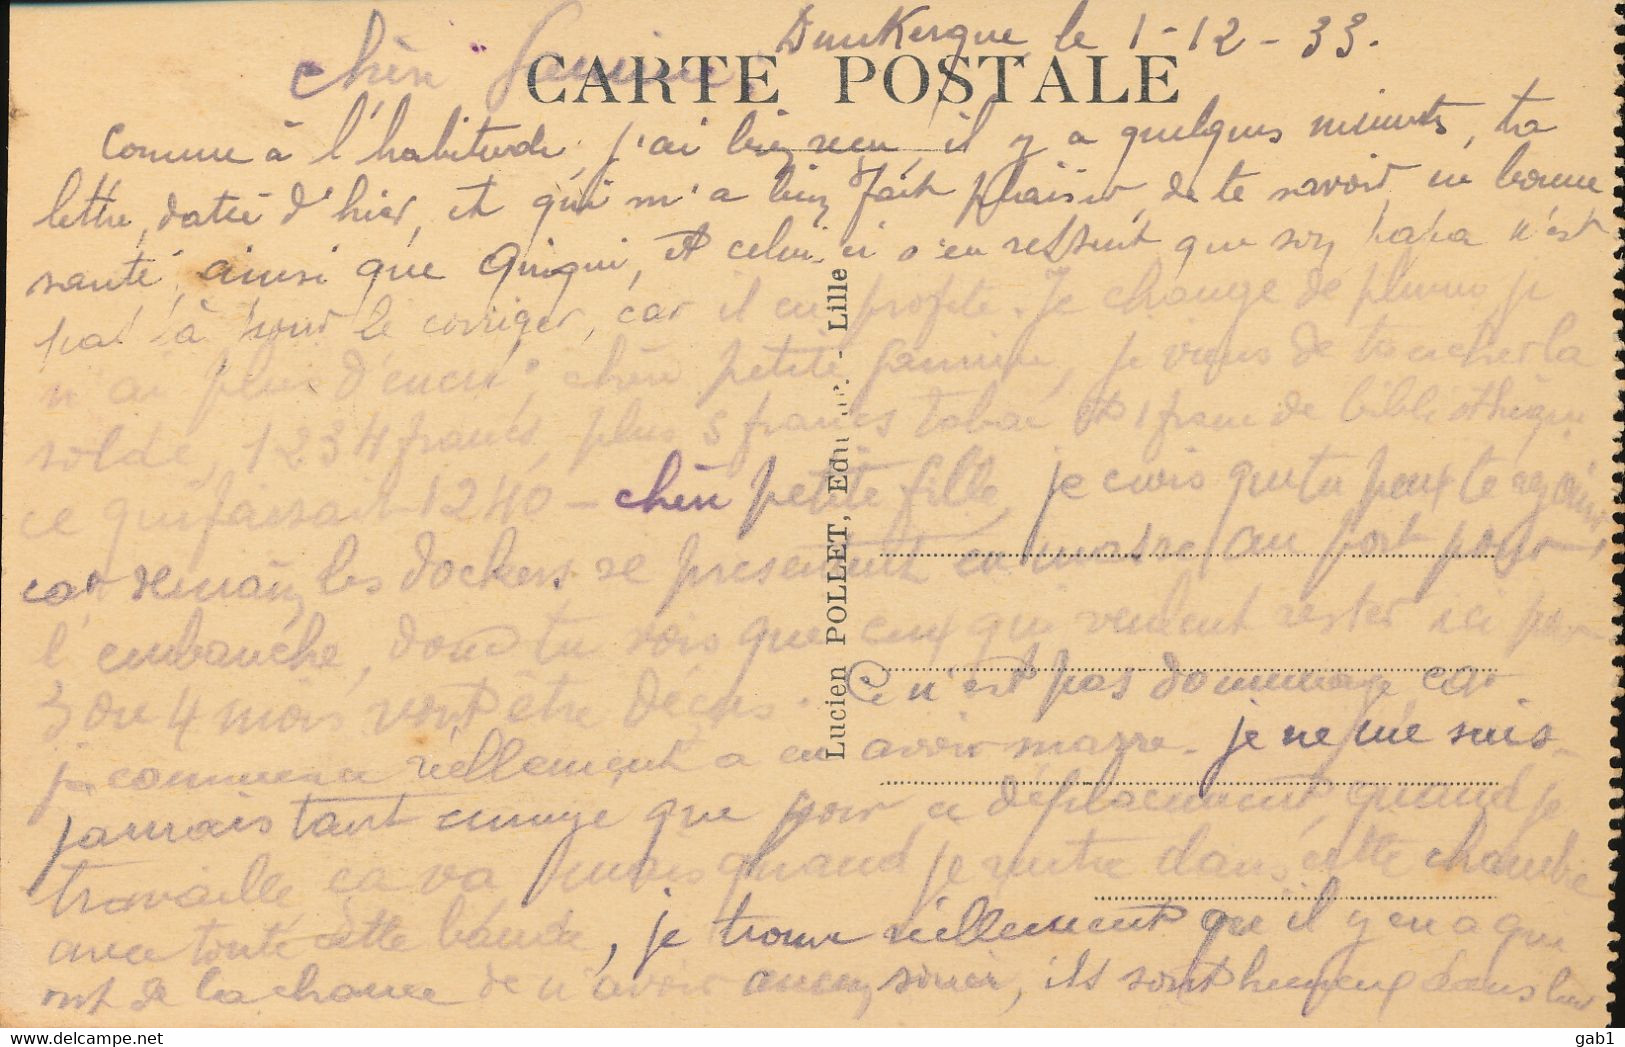 Dunkerque, le 1-12-33.
CARTE POSTALE
Comme à l'habitude, j'ai bien reçu il y a quelques minuts, ta
lettre, datée d'hier, et qui m'a bien fait plaisir, de te savoir, en bonne
santé, ainsi que Quiqui, et celui-ci s'en ressent que son papa n'est
pas là pour le corriger, car il en profite. Je change de plume, je
n'ai plus d'encre; chère petite Jannine, je viens de toucher la
solde, 1234 francs, plus 5 francs tabac et 1 franc de bibliothèque
ce qui faisait 1240 - chère petite fille, je crois que tu peux te réjouir
car demain, les dockers se présentent en masse, au port pour
l'embauche, donc tu vois que ceux qui veulent rester ici pour
3 ou 4 mois vont être déçus. Ce n'est pas dommage, car
je commence réellement a en avoir marre. je ne me suis
jamais tant ennuyé que pour ce déplacement, quand je
travaille ça va mais quand je rentre dans cette chambre
avec toute cette bande, je trouve réellement que il y en a qui
ont de la chance de n'avoir aucun souci, ils sont heureux dans leur
Lucien POLLET, Lille
gab1